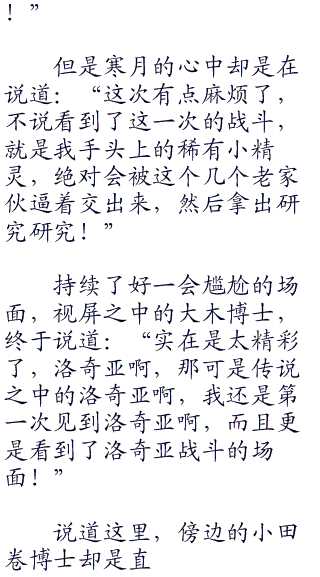 ！”
但是寒月的心中却是在
说道：“这次有点麻烦了，
不说看到了这一次的战斗，
就是我手头上的稀有小精
灵，绝对会被这个几个老家
伙逼着交出来，然后拿出研
究研究！”
持续了好一会尴尬的场
面，视屏之中的大木博士，
终于说道：“实在是太精彩
了，洛奇亚啊，那可是传说
之中的洛奇亚啊，我还是第
一次见到洛奇亚啊，而且更
是看到了洛奇亚战斗的场
面！”
说道这里，傍边的小田
卷博士却是直